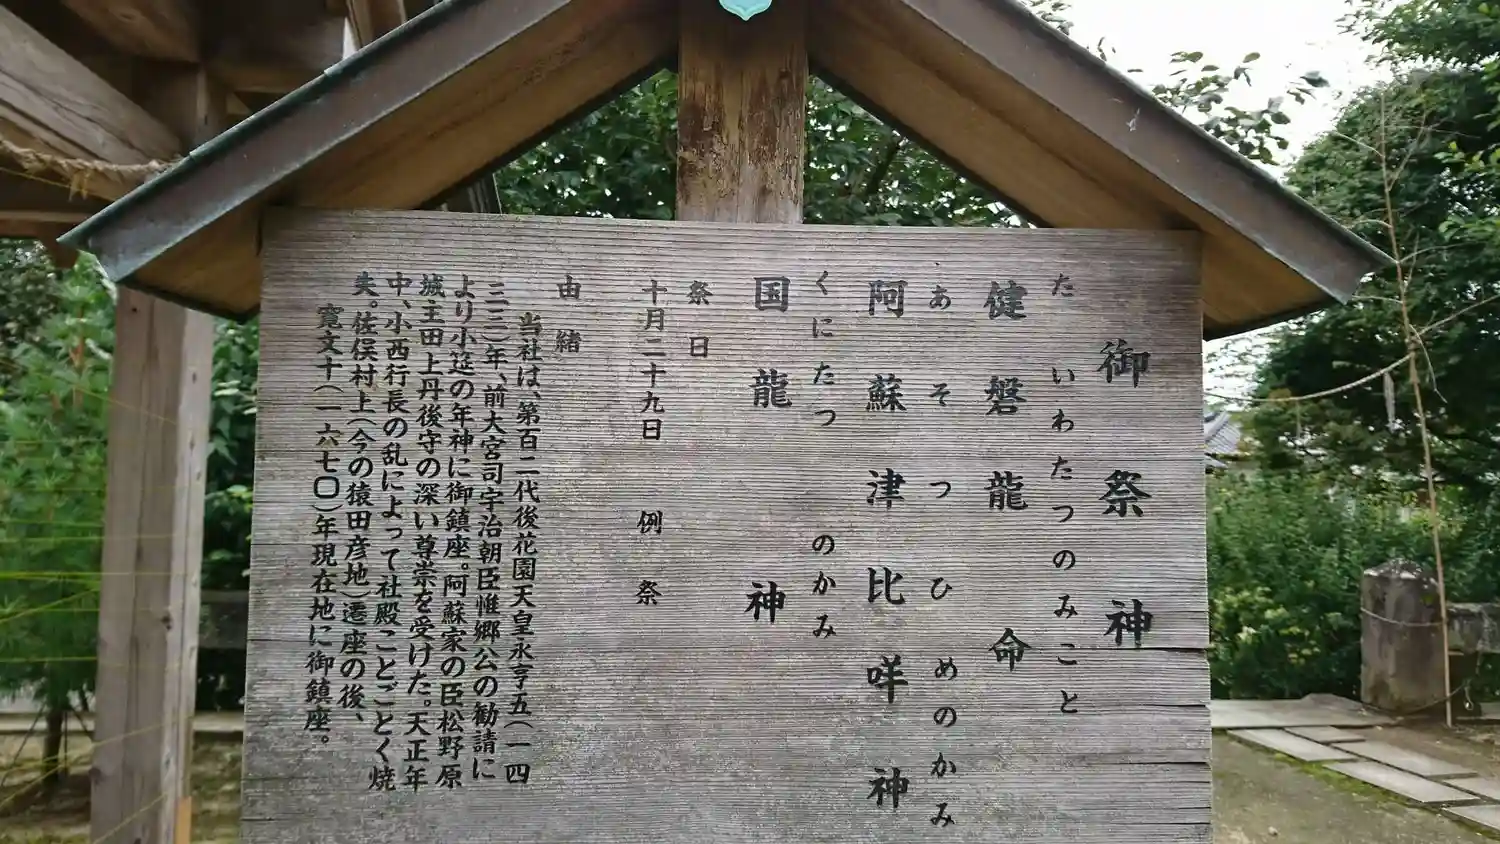 御祭神
たけいわたつのみこと
健磐龍命
あそつひめのかみ
阿蘇津比咩神
くにたつのかみ
国龍神
祭日
十月二十九日　例祭
由緒
当社は、第百二代後花園天皇永亨五(一四
三三)年、前大宮司宇治朝臣惟郷公の勧請に
より小莚の年神に御鎮座。阿蘇家の臣松野原
城主田上丹後守の深い尊崇を受けた。天正年
中、小西行長の乱によって社殿ことごとく焼
失。佐俣村上(今の猿田彦地)遷座の後、
寛文十(一六七〇)年現在地に御鎮座。